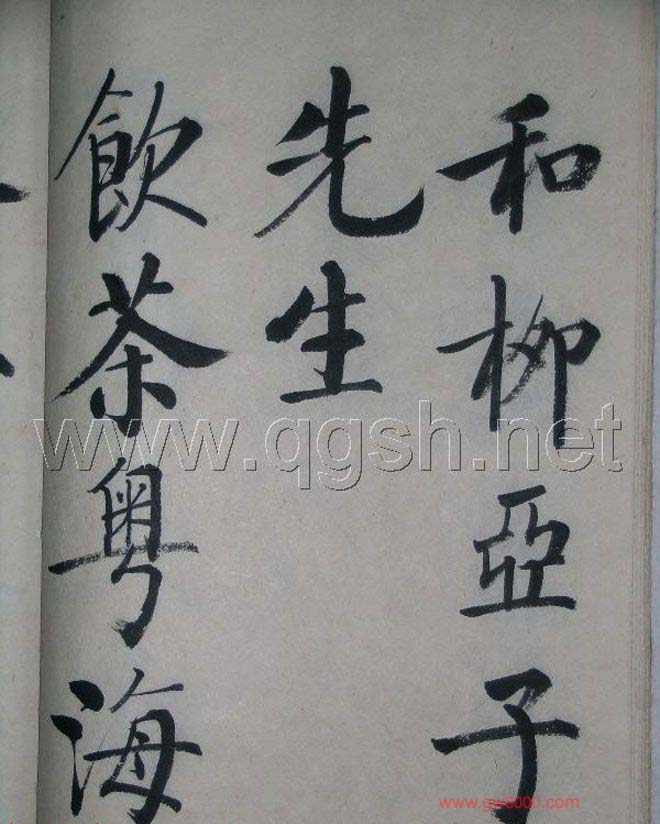 和柳亞子
先生
飲茶粵海
www.qgsh.net
www.gw5000.com